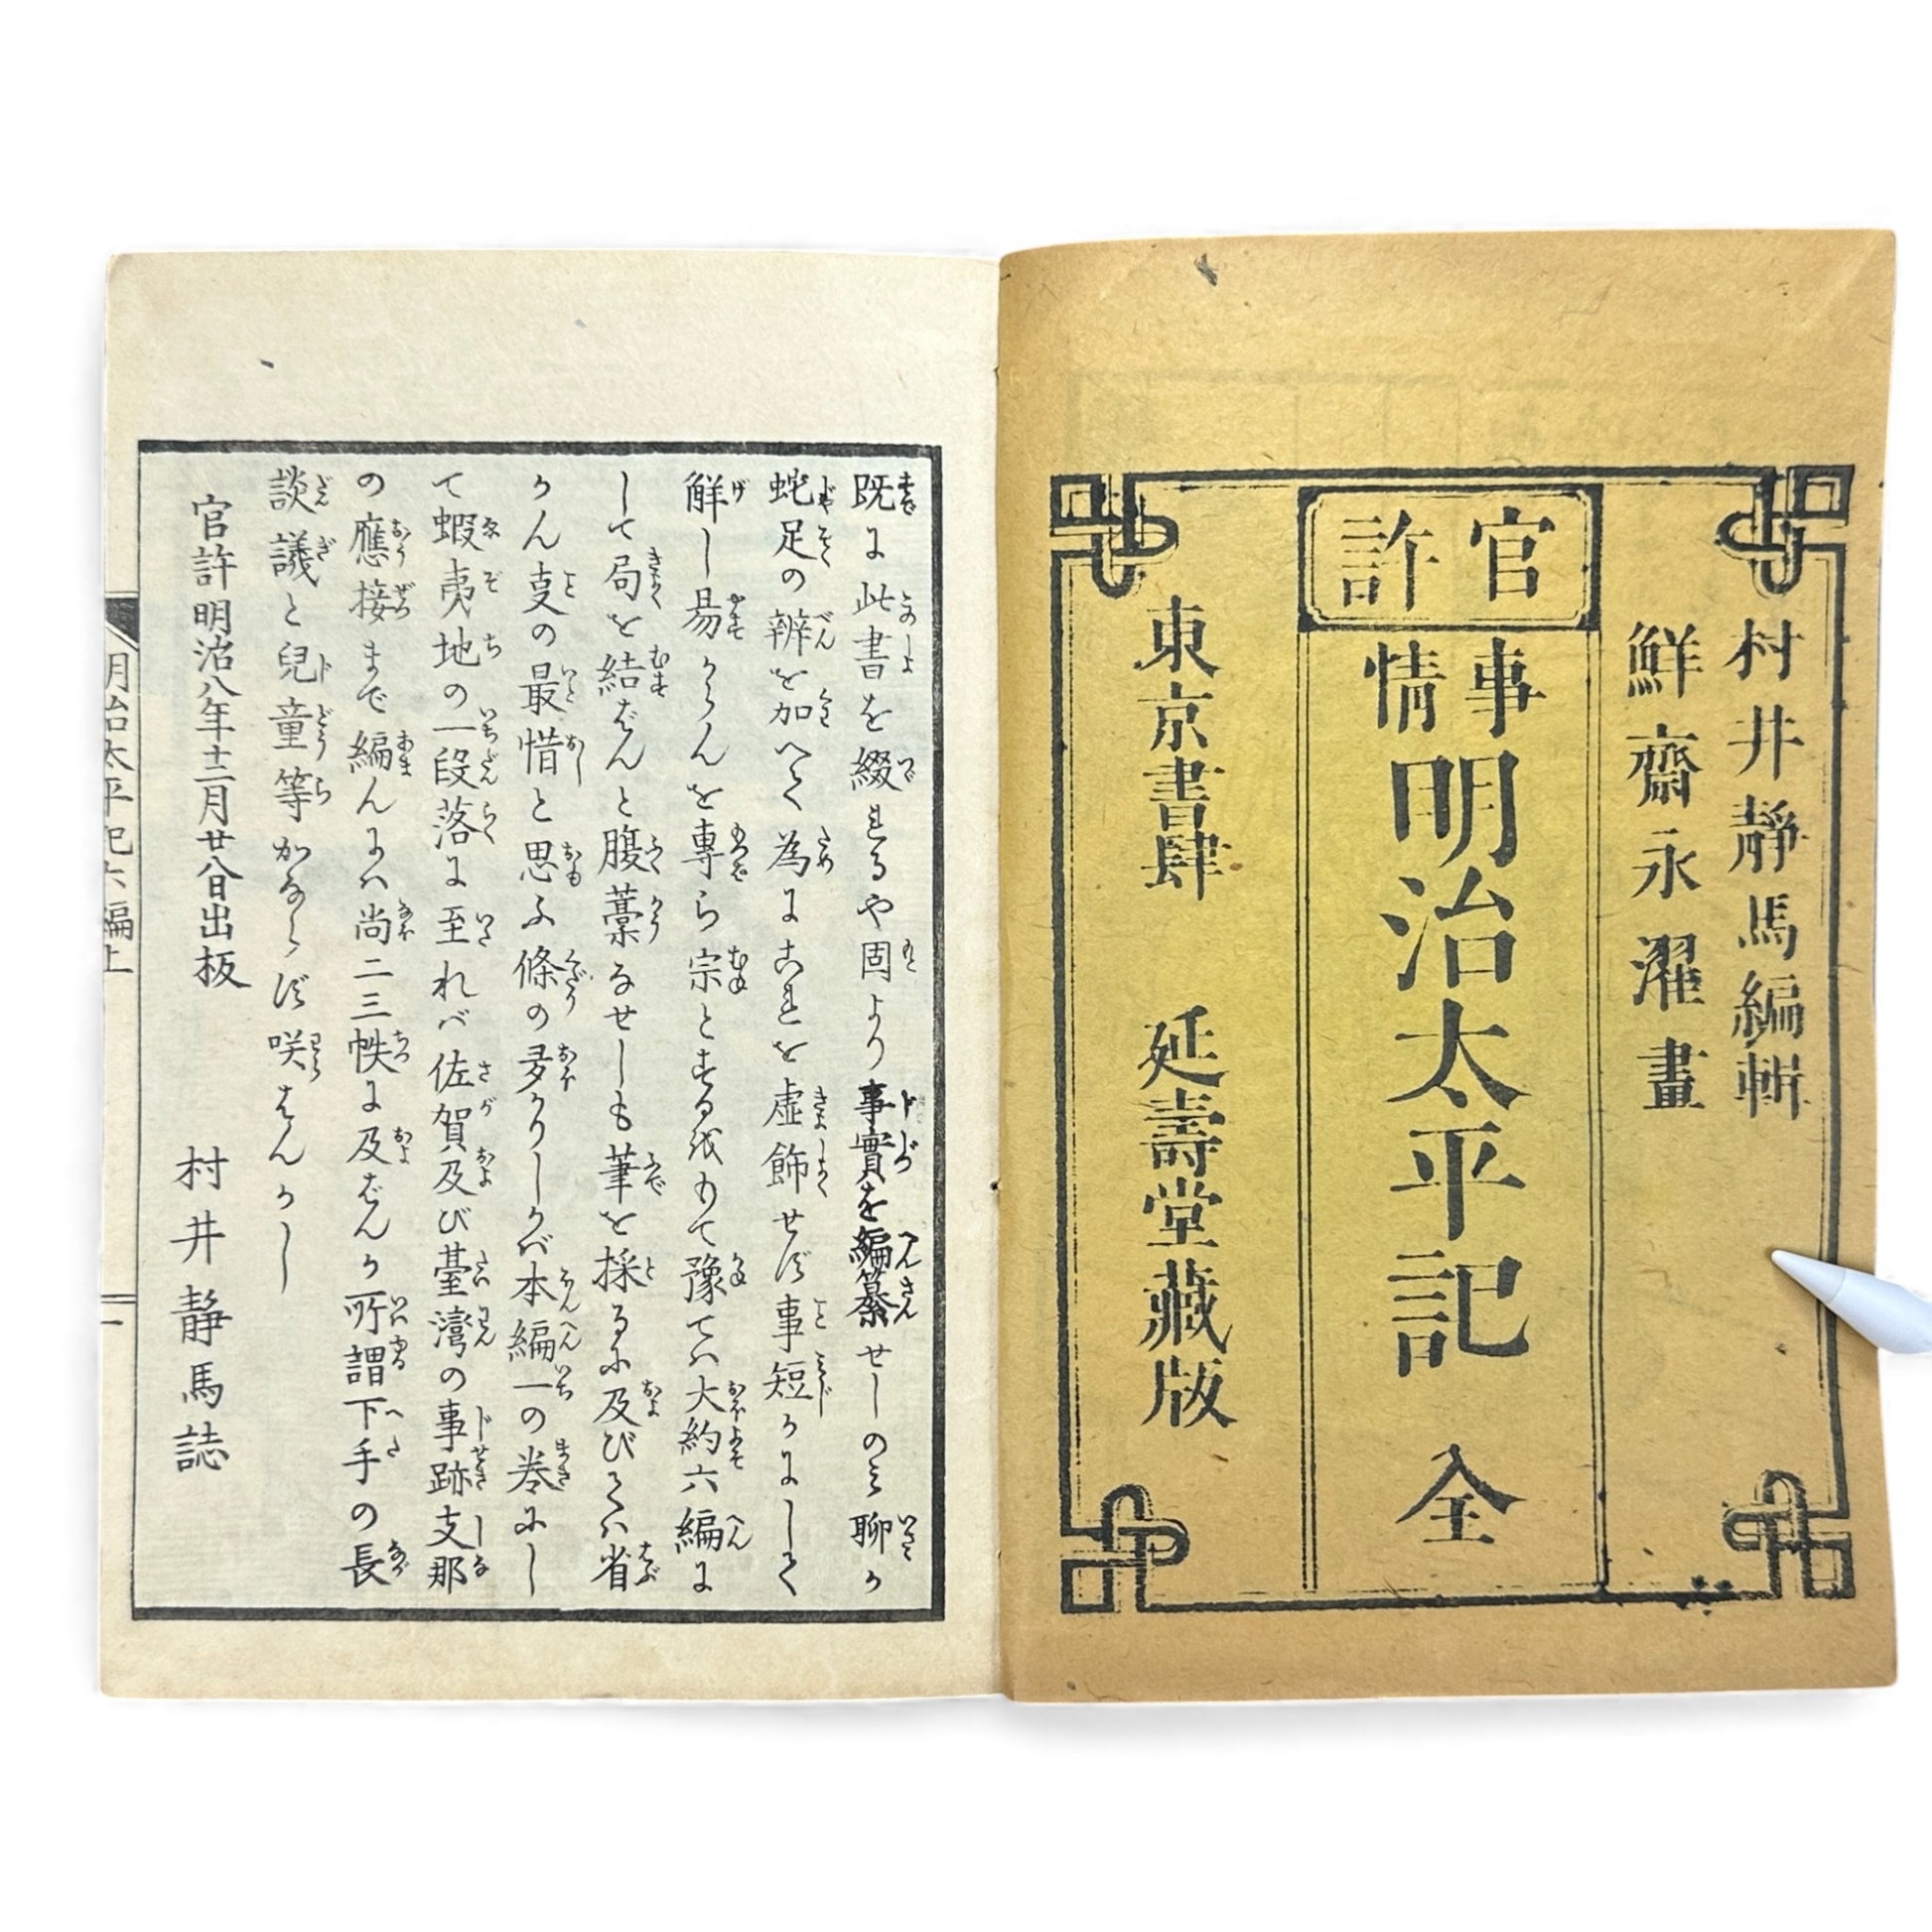 村井靜馬編輯
鮮齋永濯畫
官許
事情
明治太平記 全
東京書肆 延壽堂藏版
既に此書を綴れるや固より事實を編纂せしのミ聊か
蛇足の辨を加へて為にこれを虚飾せず事短かにして
解し易からんを專ら宗とするをもて豫てハ大約六編に
して局を結ばんと腹藁なせしも筆を採るに及びてハ省
かん支の最惜と思ふ條の多かりしかバ本編一の巻にし
て蝦夷地の一段落に至れバ佐賀及び臺灣の事跡支那
の應接まで編んにハ尚二三帙に及ばんか所謂下手の長
談議と兒童等かならず咲はんかし
官許明治八年十二月廿八日出板
村井静馬誌
明治太平記六編上